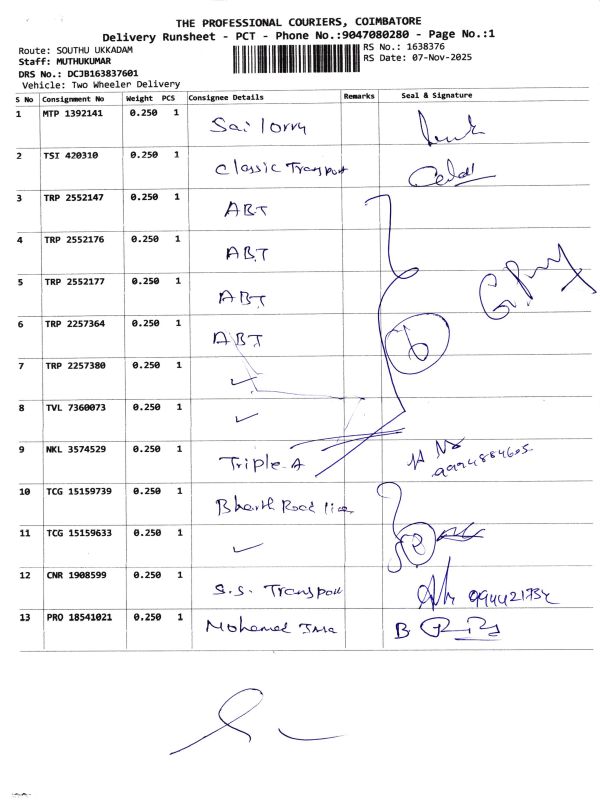 THE PROFESSIONAL COURIERS, COIMBATORE
Delivery Runsheet - PCT - Phone No.:9047080280 - Page No.:1
Route: SOUTHU UKKADAM
Staff: MUTHUKUMAR
DRS No.: DCJB163837601
Vehicle: Two Wheeler Delivery
RS No.: 1638376
RS Date: 07-Nov-2025
S No Consignment No Weight PCS Consignee Details Remarks Seal & Signature
1 MTP 1392141 0.250 1 Sai lorry
2 TSI 420310 0.250 1 Classic Transport
3 TRP 2552147 0.250 1 ABT
4 TRP 2552176 0.250 1 ABT
5 TRP 2552177 0.250 1 ABT
6 TRP 2257364 0.250 1 ABT
7 TRP 2257380 0.250 1
8 TVL 7360073 0.250 1
9 NKL 3574529 0.250 1 Triple-A
10 TCG 15159739 0.250 1
11 TCG 15159633 0.250 1
12 CNR 1908599 0.250 1 S.S. Transport
13 PRO 18541021 0.250 1 Mohamed B